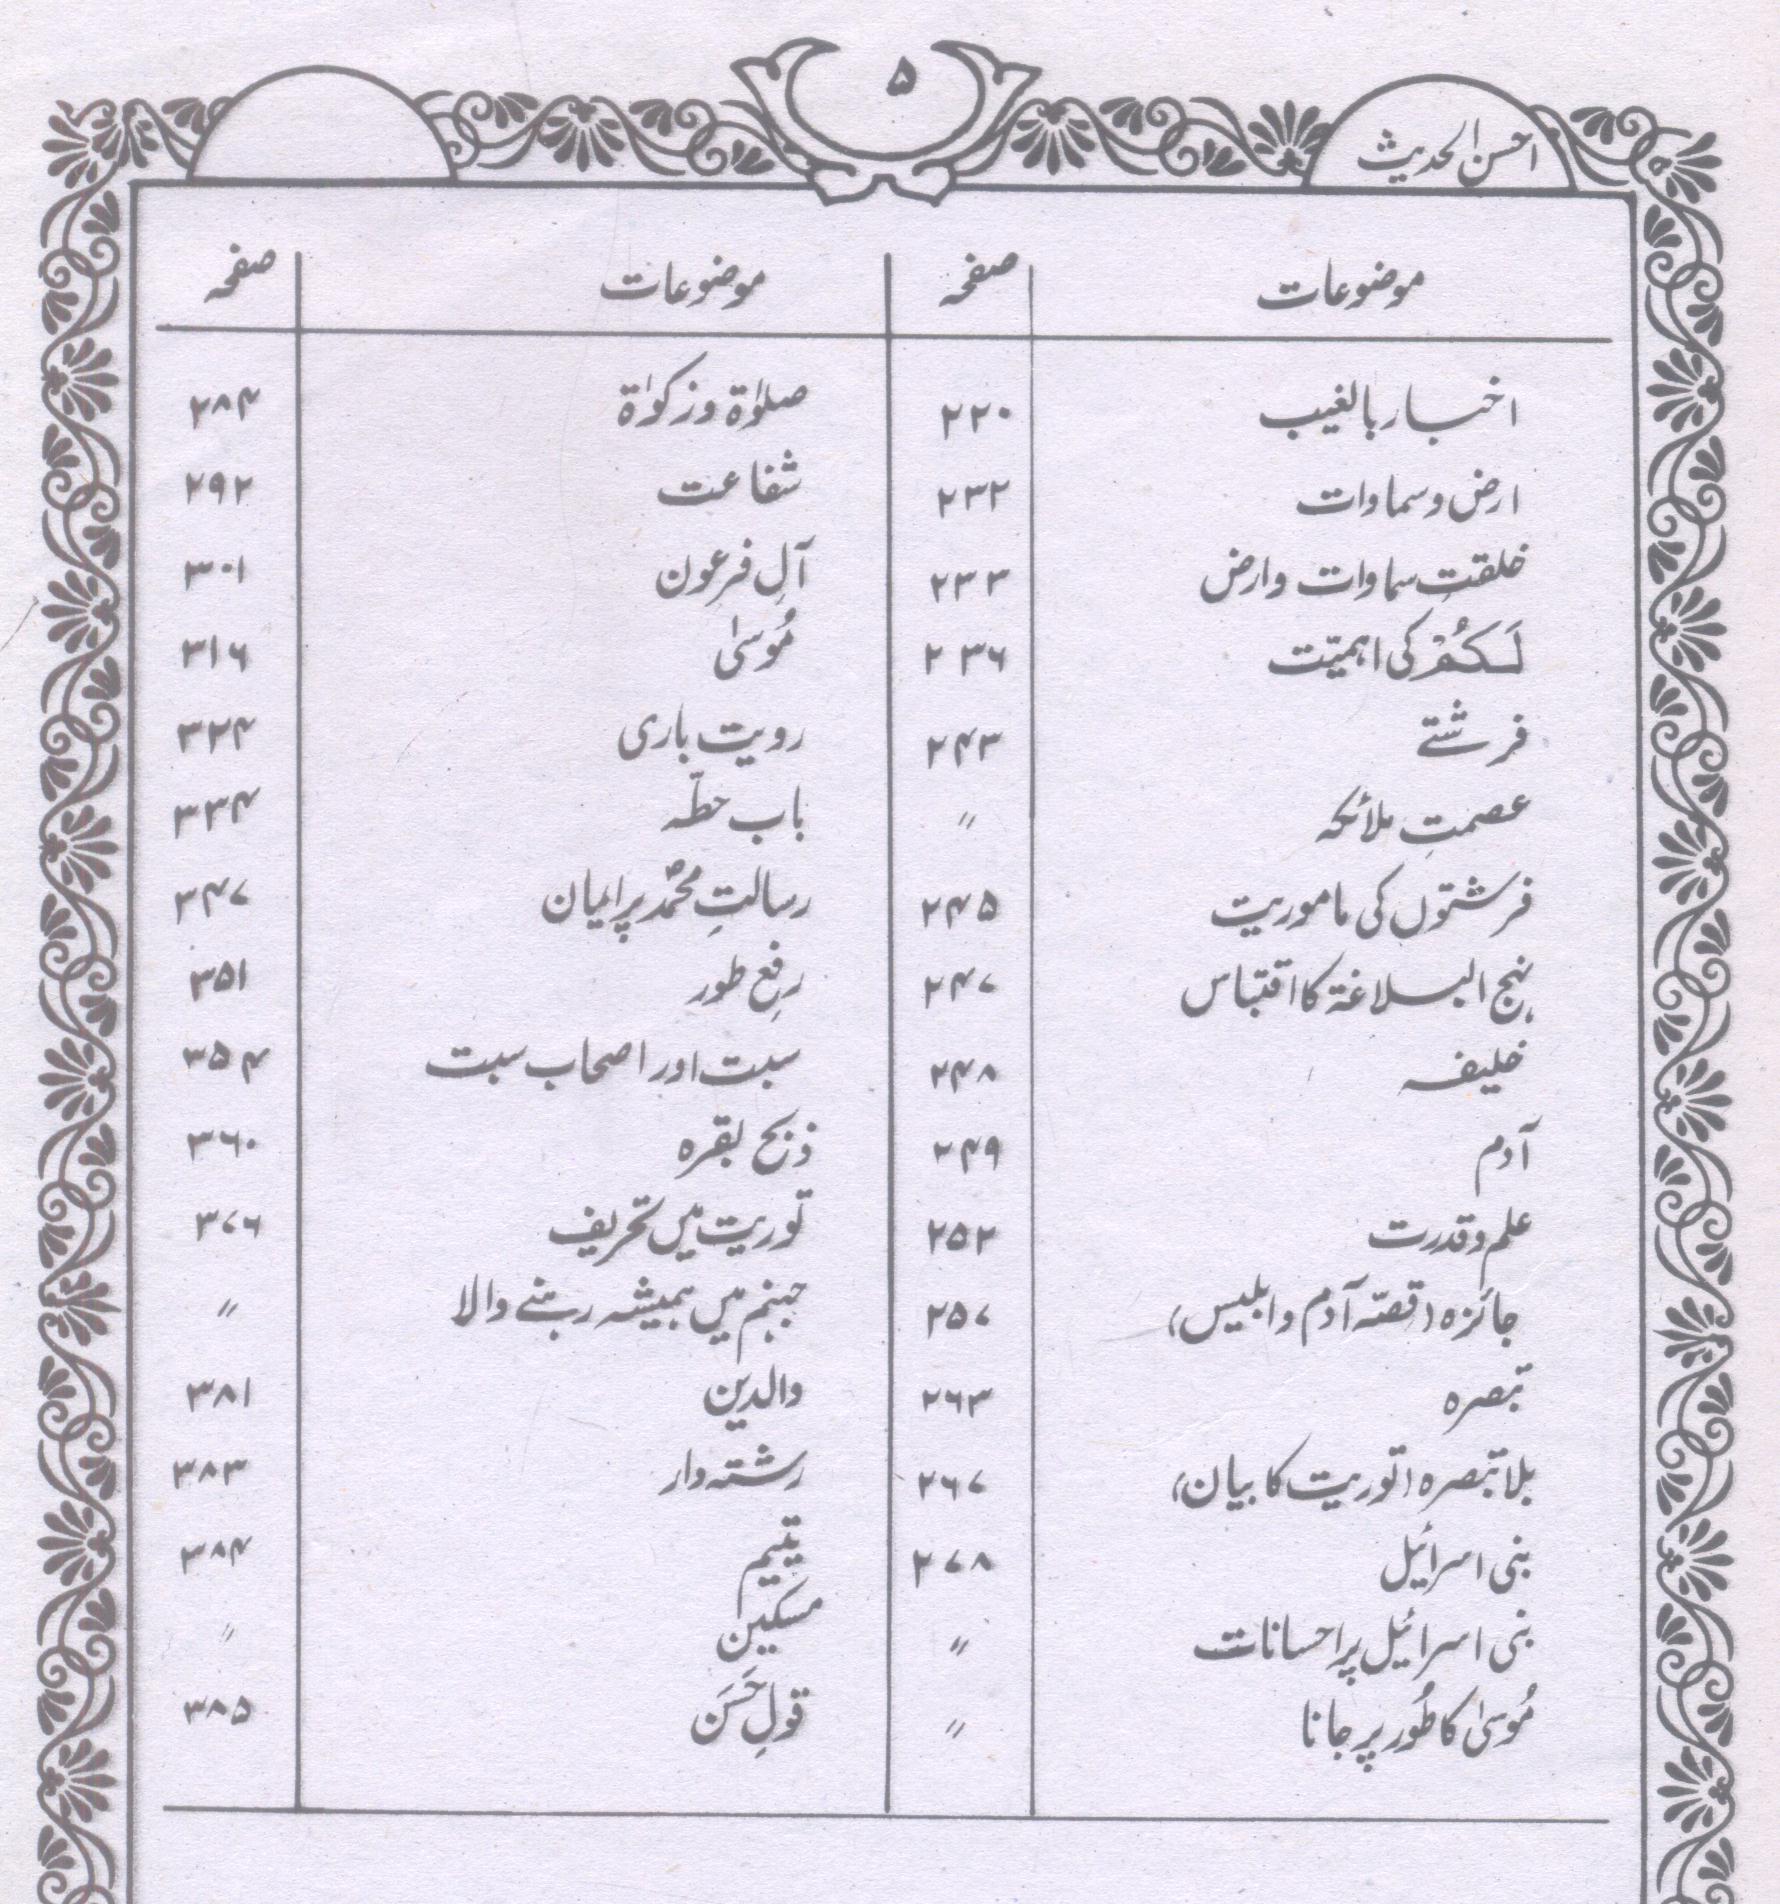 ۵
احسن الحدیث
موضوعات صفحہ موضوعات صفحہ
اخبار بالغیب ۲۲۰ صلوٰۃ و زکوٰۃ ۲۸۴
ارض و سماوات ۲۳۲ شفاعت ۲۹۲
خلقت سماوات و ارض ۲۳۳ آلِ فرعون ۳۰۱
لَکُمْ کی اہمیّت ۲۳۶ مُوسیٰ ۳۱۶
فرشتے ۲۴۳ رویت باری ۳۲۴
عصمتِ ملائکہ 〃 باب حطّہ ۳۳۴
فرشتوں کی ماموریت ۲۴۵ رسالتِ محمّدؐ پر ایمان ۳۴۷
نہج البلاغۃ کا اقتباس ۲۴۷ رفعِ طور ۳۵۱
خلیفہ ۲۴۸ سبت اور اصحاب سبت ۳۵۴
آدم ۲۴۹ ذبح بقرہ ۳۶۰
علم و قدرت ۲۵۲ توریت میں تحریف ۳۷۶
جائزہ (قصّہ آدم و ابلیس) ۲۵۷ جہنم میں ہمیشہ رہنے والا 〃
تبصرہ ۲۶۳ والدین ۳۸۱
بلا تبصرہ (توریت کا بیان) ۲۶۷ رشتہ دار ۳۸۳
بنی اسرائیل ۲۷۸ یتیم ۳۸۴
بنی اسرائیل پر احسانات 〃 مسکین 〃
مُوسیٰ کا طُور پر جانا 〃 قولِ حَسَن ۳۸۵